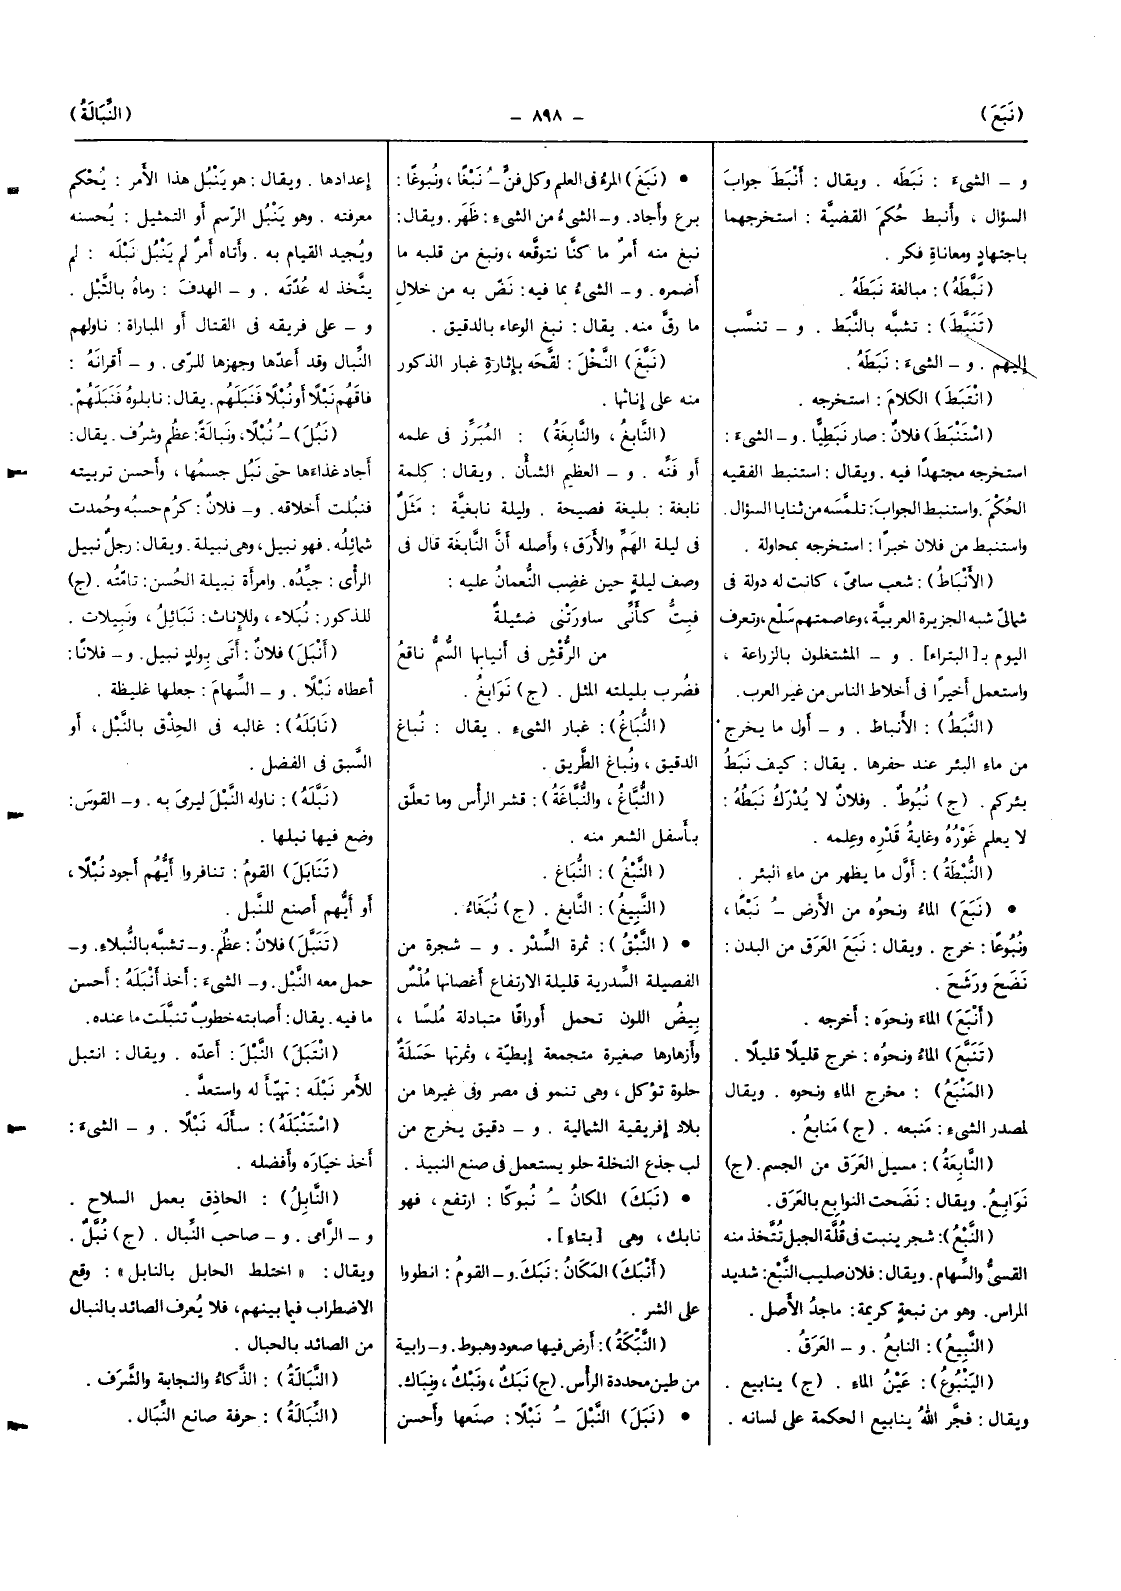 (نَبَعَ)
- ٨٩٨ -
(النِّبَالَةُ)
و - الشىءَ : نَبَطَه . ويقال : أَنْبَطَ جوابَ
السؤال ، وأنبط حُكمَ القضيَّة : استخرجهما
باجتهادٍ ومعاناةِ فكر .
(نَبَّطَهُ) : مبالغة نَبَطَهُ .
(تَنَبَّطَ) : تشبَّه بالنَّبَط . و - تنسَّب
إليهم . و - الشىءَ : نَبَطَهُ .
(انْتَبَطَ) الكلامَ : استخرجه .
(اسْتَنْبَطَ) فلانٌ : صار نَبَطِيًّا . و - الشىءَ :
استخرجه مجتهدًا فيه . ويقال : استنبط الفقيه
الحُكْمَ . واستنبط الجوابَ : تلمَّسه من ثنايا السؤال .
واستنبط من فلان خبرًا : استخرجه بمحاولة .
(الأَنْبَاطُ) : شعب سامىّ ، كانت له دولة فى
شمالىّ شبه الجزيرة العربيَّة ، وعاصمتهم سَلْع ، وتعرف
اليوم بـ[البتراء] . و - المشتغلون بالزراعة ،
واستعمل أخيرًا فى أخلاط الناس من غير العرب .
(النَّبَطُ) : الأنباط . و - أول ما يخرج
من ماء البئر عند حفرها . يقال : كيف نَبَطُ
بئركم . (ج) نُبُوطٌ . وفلانٌ لا يُدْرَكُ نَبَطُهُ :
لا يعلم غَوْرُهُ وغايةُ قَدْرِه وعِلمه .
(النُّبْطَةُ) : أوَّل ما يظهر من ماء البئر .
• (نَبَعَ) الماءُ ونحوُه من الأرض ـُ نَبْعًا ،
ونُبُوعًا : خرج . ويقال : نَبَعَ العَرَق من البدن :
نَضَحَ ورَشَحَ .
(أَنْبَعَ) الماءَ ونحوَه : أخرجه .
(تَنَبَّعَ) الماءُ ونحوُه : خرج قليلًا قليلًا .
(المَنْبَعُ) : مخرج الماء ونحوه . ويقال
لمصدر الشىء : مَنبعه . (ج) مَنابعُ .
(النَّابِعَةُ) : مسيل العَرَق من الجسم . (ج)
نَوَابِعُ . ويقال : نَضَحت النوابع بالعَرَق .
(النَّبْعُ) : شجر ينبت فى قُلَّة الجبل تُتَّخذ منه
القسىُّ والسِّهام . ويقال : فلان صليب النَّبْع : شديد
المراس . وهو من نبعةٍ كريمة : ماجدُ الأصل .
(النَّبِيعُ) : النابعُ . و - العَرَقُ .
(اليَنْبُوعُ) : عَيْنُ الماء . (ج) ينابيع .
ويقال : فجَّر اللهُ ينابيع الحكمة على لسانه .
• (نَبَغَ) المرءُ فى العلم وكل فنٍّ ـُ نَبْغًا ، ونُبوغًا :
برع وأجاد . و - الشىءُ من الشىءِ : ظَهَر . ويقال :
نبغ منه أمرٌ ما كنَّا نتوقَّعه ، ونبغ من قلبه ما
أضمره . و - الشىءُ بما فيه : نَضّ به من خلالِ
ما رقَّ منه . يقال : نبغ الوعاء بالدقيق .
(نَبَّغَ) النَّخْلَ : لقَّحَه بإثارةِ غبار الذكور
منه على إناثها .
(النَّابغُ ، والنَّابِغَةُ) : المُبَرِّز فى علمه
أو فَنِّه . و - العظيم الشأْن . ويقال : كلمة
نابغة : بليغة فصيحة . وليلة نابغيَّة : مَثَلٌ
فى ليلة الهَمِّ والأرَق ؛ وأصله أنَّ النَّابغَة قال فى
وصف ليلةٍ حين غضِب النُّعمانُ عليه :
فبِتُّ كأَنِّى ساورَتْنى ضئيلةٌ
من الرُّقْشِ فى أنيابها السُّمُّ ناقعُ
فضُرب بليلته المثل . (ج) نَوَابغُ .
(النُّبَاغُ) : غبار الشىء . يقال : نُباغ
الدقيق ، ونُباغ الطَّريق .
(النُّبَّاغُ ، والنُّبَّاغَةُ) : قشر الرأس وما تعلَّق
بأسفل الشعر منه .
(النَّبْغُ) : النُّبَاغ .
(النَّبِيغُ) : النَّابغ . (ج) نُبَغَاءُ .
• (النَّبْقُ) : ثمرة السِّدْر . و - شجرة من
الفصيلة السِّدرية قليلة الارتفاع أغصانها مُلْسٌ
بِيضُ اللون تحمل أوراقًا متبادلة مُلسًا ،
وأزهارها صغيرة متجمعة إبطيَّة ، وثمرتها حَسَلَةٌ
حلوة تؤكل ، وهى تنمو فى مصر وفى غيرها من
بلاد إفريقية الشمالية . و - دقيق يخرج من
لب جذع النخلة حلو يستعمل فى صنع النبيذ .
• (نَبَكَ) المكانُ ـُ نُبوكًا : ارتفع ، فهو
نابك ، وهى [بتاء] .
(أَنْبَكَ) المَكَانُ : نَبَكَ . و - القومُ : انطووا
على الشر .
(النَّبْكَةُ) : أرض فيها صعود وهبوط . و - رابية
من طين محددة الرأس . (ج) نَبَكٌ ، ونَبْكٌ ، ونِباك .
• (نَبَلَ) النَّبْلَ ـُ نَبْلًا : صنَعها وأحسن
إعدادها . ويقال : هو يَنْبُل هذا الأمر : يُحْكم
معرفته . وهو يَنْبُل الرّسم أو التمثيل : يُحسنه
ويُجيد القيام به . وأتاه أمرٌ لم يَنْبُل نَبْلَه : لم
يتَّخذ له عُدّتَه . و - الهدفَ : رماهُ بالنَّبْل .
و - على فريقه فى القتال أو المباراة : ناولهم
النِّبال وقد أعدّها وجهزها للرّمى . و - أقرانَهُ :
فاقَهُم نَبْلًا أو نُبْلًا فَنَبَلَهُم . يقال : نابلوهُ فَنَبَلَهُمْ .
(نَبُلَ) ـُ نُبْلًا ، ونَبالةً : عظُم وشرُف . يقال :
أجاد غذاءها حتى نَبُل جسمُها ، وأحسن تربيته
فنبُلت أخلاقه . و - فلانٌ : كرُم حسبُه وحُمدت
شمائلُه . فهو نبيل ، وهى نبيلة . ويقال : رجلٌ نبيل
الرأى : جيِّده . وامرأة نبيلة الحُسن : تامَّتُه . (ج)
للذكور : نُبلاء ، وللإناث : نَبَائِلُ ، ونَبِيلات .
(أَنْبَلَ) فلانٌ : أَتَى بِولدٍ نبيل . و - فلانًا :
أعطاه نَبْلًا . و - السِّهامَ : جعلها غليظة .
(نَابَلَهُ) : غالبه فى الحِذْق بالنَّبْل ، أو
السَّبق فى الفضل .
(نَبَّلَهُ) : ناوله النَّبْلَ ليرمىَ به . و - القوسَ :
وضع فيها نبلها .
(تَنَابَلَ) القومُ : تنافروا أيُّهم أجود نُبْلًا ،
أو أيُّهم أصنع للنَّبل .
(تَنَبَّلَ) فلانٌ : عظُم . و - تشبَّه بالنُّبلاءِ . و -
حمل معه النَّبْل . و - الشىءَ : أخذ أَنْبَلَهُ : أحسن
ما فيه . يقال : أصابته خطوبٌ تنبَّلَت ما عنده .
(انْتَبَلَ) النَّبْلَ : أعدّه . ويقال : انتبل
للأمر نَبْلَه : تهيّأ له واستعدَّ .
(اسْتَنْبَلَهُ) : سأله نَبْلًا . و - الشىءَ :
أخذ خيَارَه وأفضله .
(النَّابِلُ) : الحاذِق بعمل السلاح .
و - الرَّامى . و - صاحب النِّبال . (ج) نُبَّلٌ .
ويقال : «اختلط الحابل بالنابل» : وقع
الاضطراب فيما بينهم ، فلا يُعرف الصائد بالنبال
من الصائد بالحبال .
(النَّبَالَةُ) : الذَّكاءُ والنجابة والشَّرَف .
(النِّبَالَةُ) : حرفة صانع النِّبَال .